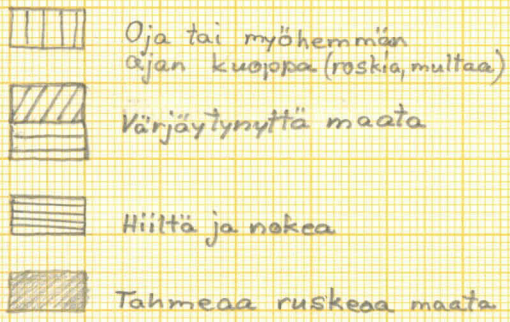 Oja tai myöhemmän
ajan kuoppa (roskia, multaa)
Värjäytynyttä maata
Hiiltä ja nokea
Tahmeaa ruskeaa maata